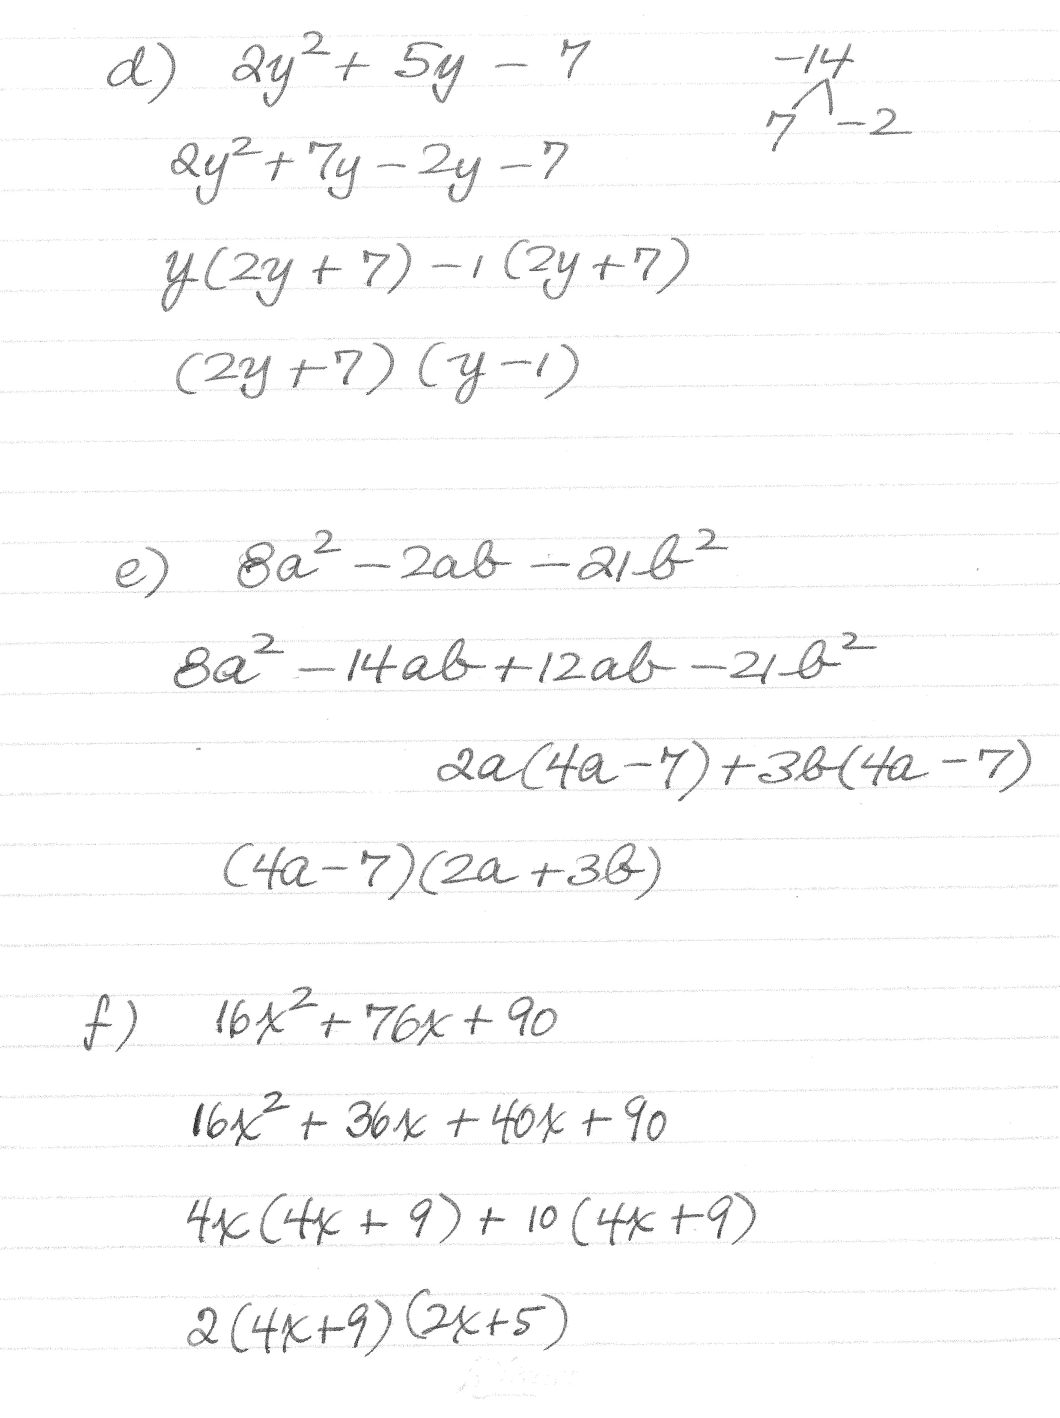 d) 2y² + 5y - 7
-14
7 -2
2y² + 7y - 2y - 7
y(2y + 7) - 1(2y + 7)
(2y + 7)(y - 1)
e) 8a² - 2ab - 21b²
8a² - 14ab + 12ab - 21b²
2a(4a - 7) + 3b(4a - 7)
(4a - 7)(2a + 3b)
f) 16x² + 76x + 90
16x² + 36x + 40x + 90
4x(4x + 9) + 10(4x + 9)
2(4x + 9)(2x + 5)